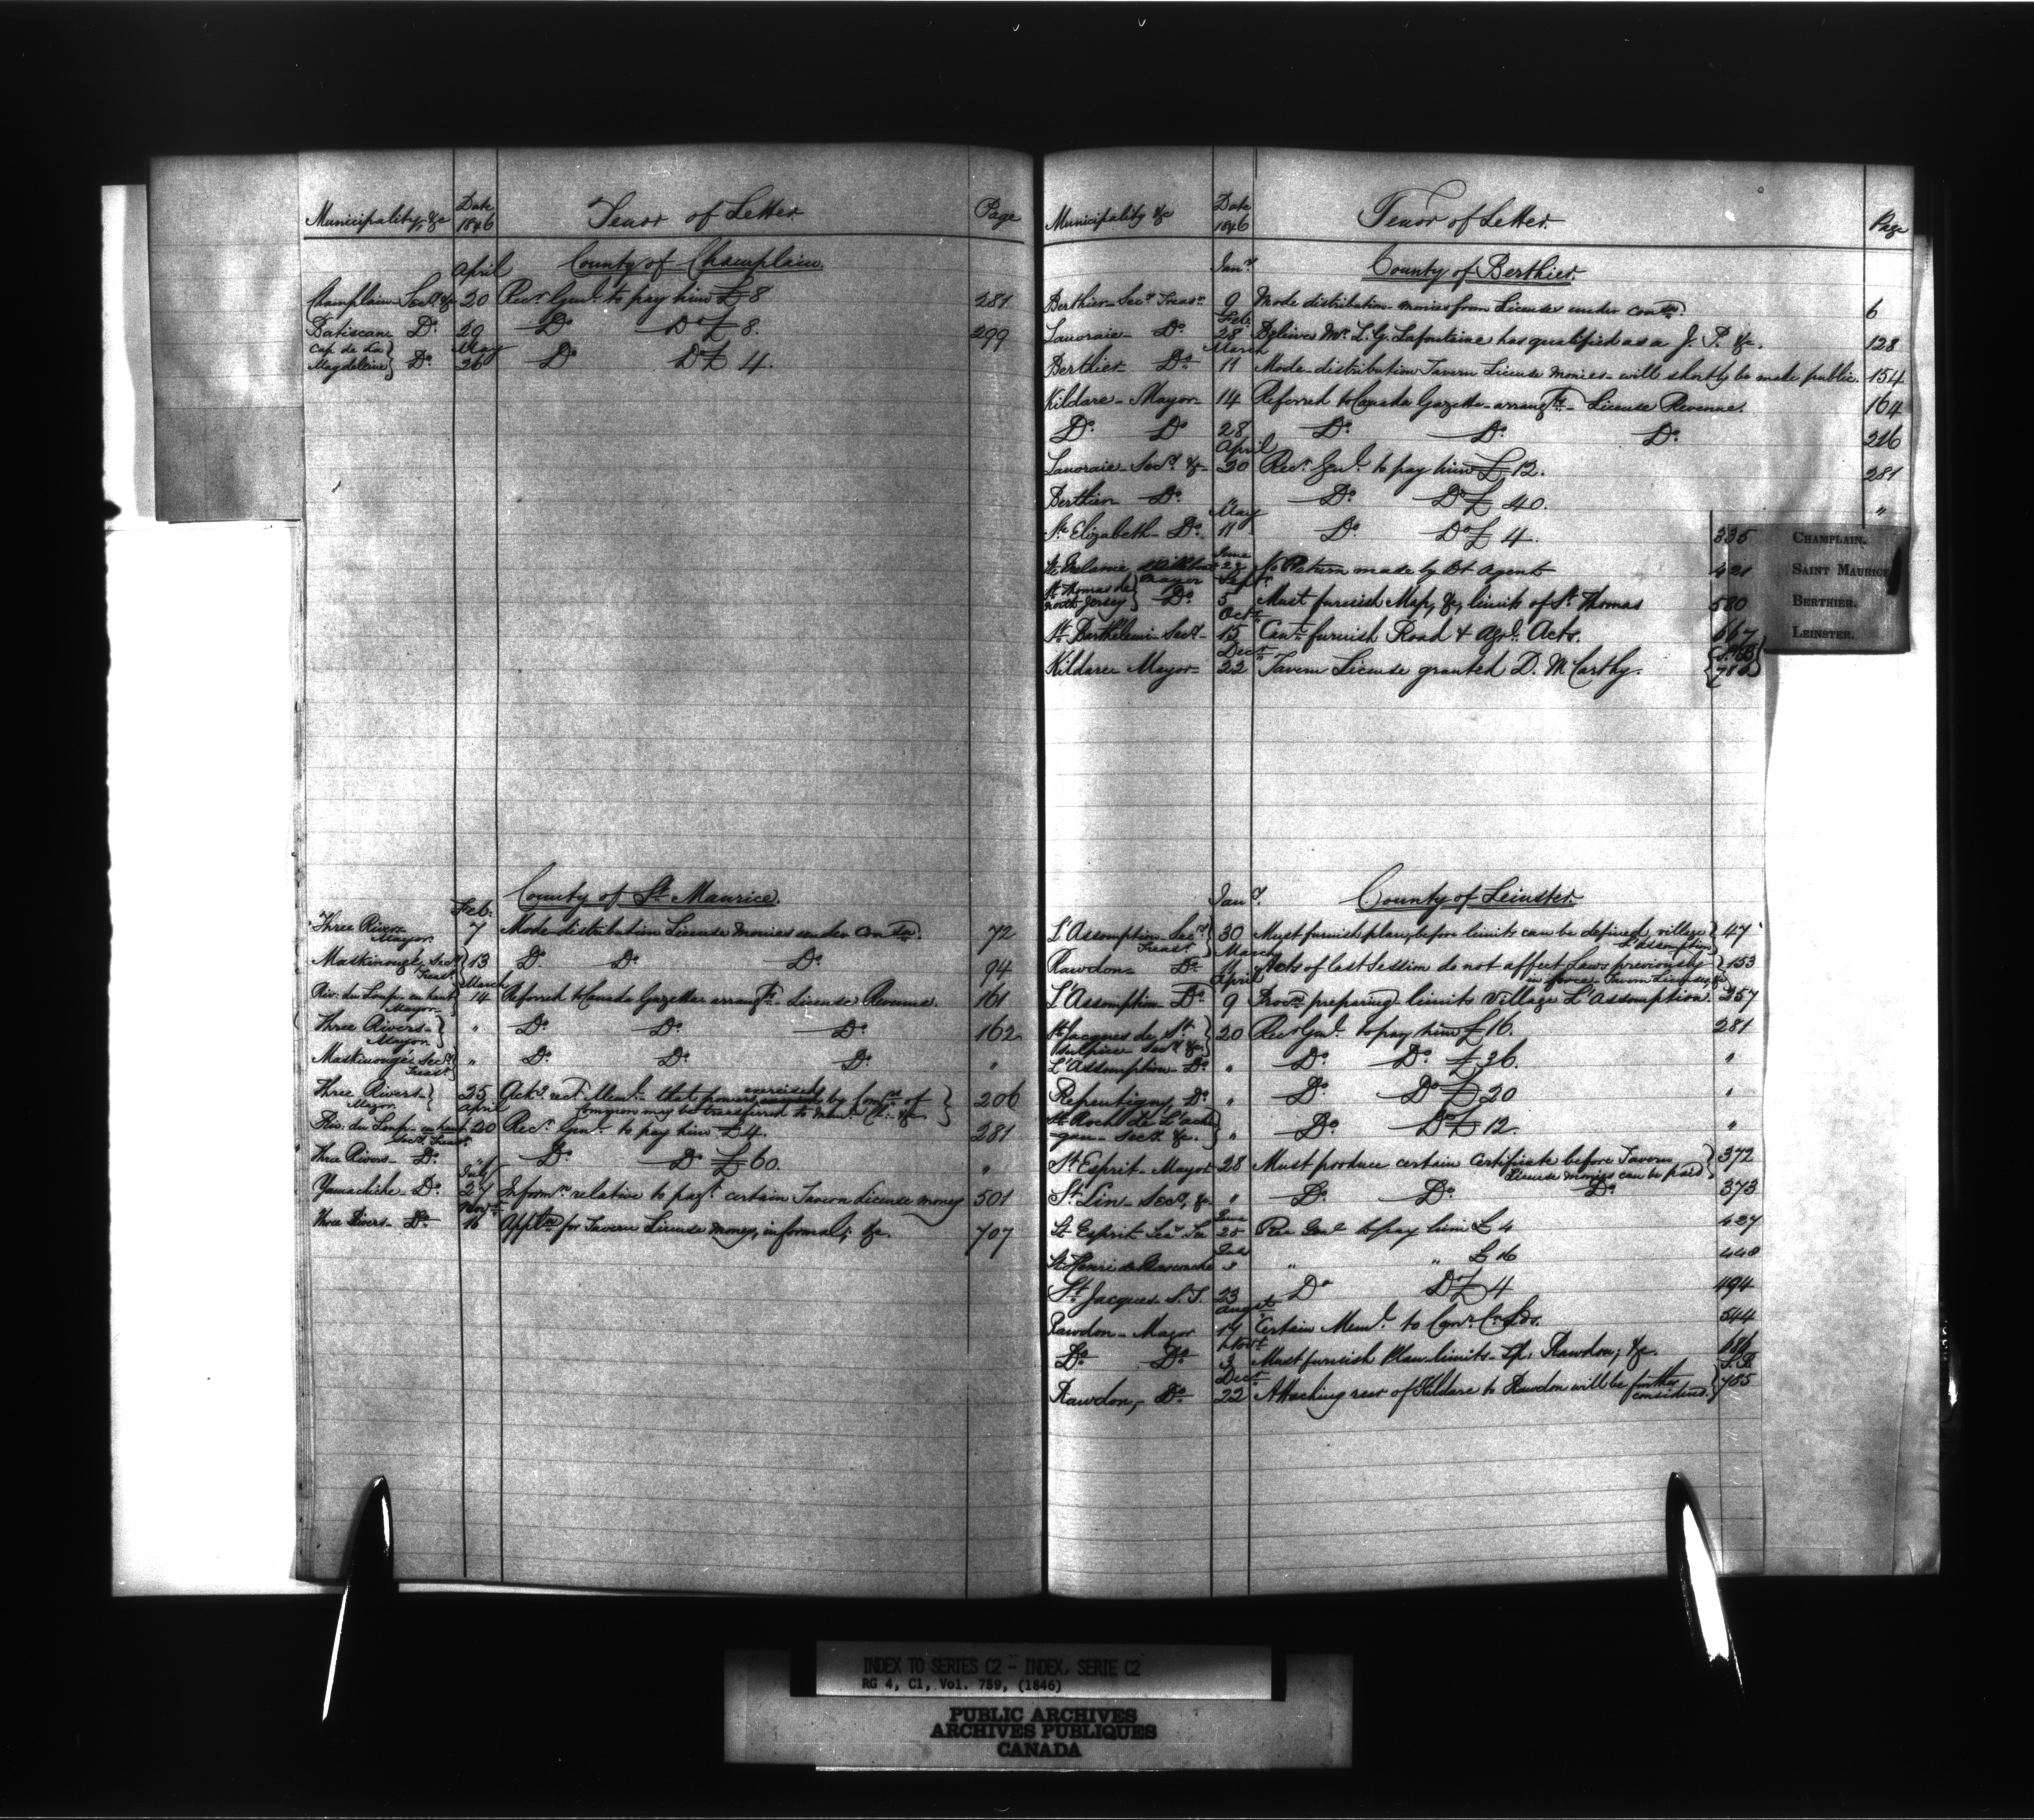 Municipality, &c Date 1846 Tenor of Letter Page
County of Champlain
April
Champlain Secy. &c 20 Recr. Genl. to pay him £8 281
Batiscan Do. 29 Do Do £ 8. 299
May
Cap de la Magdeleine} Do. 26 Do Do £ 4.
County of St. Maurice.
Feb.
Three Rivers Mayor. 7 Mode distribution License monies under conson. 72
Maskinongé Secy. Treasr. } 13 Do. Do. Do. 94
March
Riv: du Loup en haut Mayor 14 Referred to Canada Gazette arrangts. License Revenue. 161
Three Rivers- Mayor } " Do. Do. Do. 162
Maskinongé Secy. Treasr. } " Do. Do. Do. "
Three Rivers- Mayor } 25 Ackd. rect. Meml. that powers exercised by Comrs. of
may be transferred to &c } 206
April
Riv. du Loup en haut Secy. Treasr. 20 Recr. Genl. to pay him £4. 281
Three Rivers- Do. " Do. Do £60. "
July
Yamachiche Do. 27 Informn. relative to payt. certain Tavern License money 501
Novr.
Three Rivers- Do. 16 Appltn. for Tavern License money, informal; &c. 707
Municipality &c Date 1846 Tenor of Letter. Page
Jany. County of Berthier.
Berthier Secy. Treasr. 9 Mode distribution monies from Licenses under conson. 6
Feb.
Lanoraie- Do. 28 Believe Mr. L. G. Lafontaine has qualified as a J. P. &c. 128
March
Berthier Do. 11 Mode distribution Tavern License monies- will shortly be made public. 154
Kildare- Mayor- 14 Referred to Canada Gazette- arrangts.- License Revenue. 164
Do. Do 28 Do. Do. Do. 216
April
Lanoraie- Secy. &c 20 Recr. Genl. to pay him £12. 281
Berthier Do. " Do. Do £ 40. "
May
Ste Elizabeth- Do. 11 Do. Do £ 4. 335
June
St. Melanie 22 No Return made by Dt. Agent 421
Mayor Septr.
St. Thomas de North Jersey} Do. 5 Must furnish Map, &c, limits of St. Thomas 580
Octr.
St. Barthélemi- Secy.- 15 Cant. furnish Road & Agrl. Acts. 667
Decr.
Kildare Mayor- 22 Tavern License granted D. McCarthy. 786
CHAMPLAIN.
SAINT MAURICE
BERTHIER.
LEINSTER.
Jany. County of Leinster.
L'Assomption Secy. Treasr. } 30 Must furnish plan, before limits can be defined, village L'Assomption } 47
March
Rawdon- Do. 11 Acts of last Session do not affect Laws previously in force- Tavern Licenses, &c } 153
April
L'Assomption- Do. 9 Procn. preparing limits Village L'Assomption. 257
St. Jacques de St. Sulpice Secy. &c } 20 Recr. Genl. to pay him £16. 281
L'Assomption- Do. " Do. Do. £ 36. "
Repentigny, Do. " Do. Do £ 20 "
St. Roch de L'achigan- Secy. &c. } " Do. Do £ 12. "
St. Esprit- Mayor 28 Must produce certain certificate before Tavern License monies can be paid } 372
St. Lin- Secy. &c. " Do. Do. Do. 373
June
St. Esprit Sec Tr 25 Rec Genl to pay him £ 4 427
St Henri de Mascouche " " £ 16 448
St. Jacques- S. T. 23 Do Do £ 4 494
Augst.
Rawdon- Mayor 17 Certain Meml. to Comr. Cr. Lds. 544
Novr.
Do. Do. 3 Must furnish Plan limits- Tp. Rawdon; &c. 686
Decr.
Rawdon, Do. 22 Attaching rear of Kildare to Rawdon will be further considered } 785
INDEX TO SERIES C2 - INDEX, SERIE C2
RG 4, C1, Vol. 759, (1846)
PUBLIC ARCHIVES
ARCHIVES PUBLIQUES
CANADA